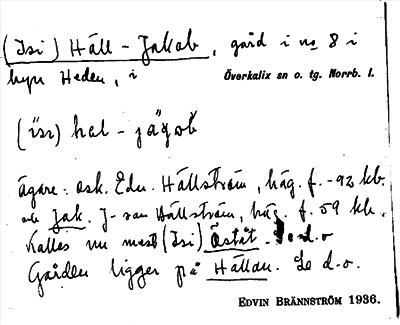 (Isi) Häll-Jakob, gård i no 8 i
byn Heden, i Överkalix sn o. tg. Norrb. l.
(ısı) hel-jägob
ägare: ask. Edv. Hällström, häg. f. -92 kb.
och Jak. J-son Hällström, häg. f. 59 kb.
Kallas nu mest (Isi) Östat. Se d.o
Gården ligger på Hällan. Se d.o.
EDVIN BRÄNNSTRÖM 1936.